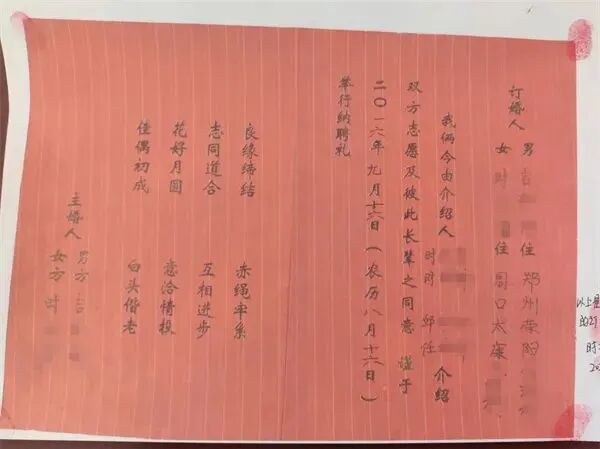 订婚人 男 吉 住 郑州荥阳
女 时 住 周口太康
我俩今由介绍人 时 时 邱 任 介绍
双方志愿及彼此长辈之同意 谨于
二〇一六年九月十六日(农历八月十六日)
举行纳聘礼
良缘缔结 赤绳牢系
志同道合 互相进步
花好月圆 意洽情投
佳偶初成 白头偕老
主婚人 男方 吉
女方 时
以上是
的订
时
20